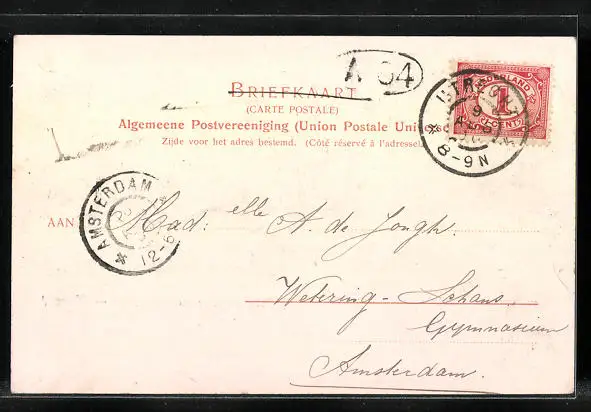 A 64
BRIEFKAART
(CARTE POSTALE)
Algemeene Postvereeniging (Union Postale Universelle)
Zijde voor het adres bestemd. (Côté réservé à l'adresse)
NEDERLAND
1
CENT
UTRECHT
9
8-9 N
AMSTERDAM
12-6
AAN Mad: elle A. de Jongh.
Wetering-Schans,
Gymnasium
Amsterdam.